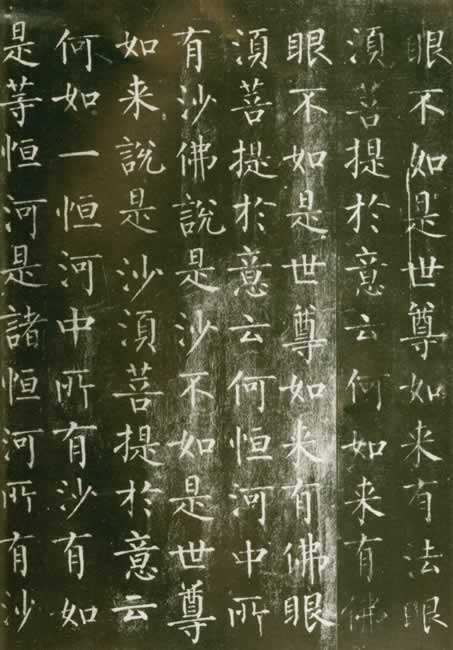 眼不如是世尊如来有法眼
湏菩提於意云何如来有佛
眼不如是世尊如来有佛眼
湏菩提於意云何恒河中所
有沙佛說是沙不如是世尊
如来說是沙湏菩提於意云
何如一恒河中所有沙有如
是等恒河是諸恒河所有沙